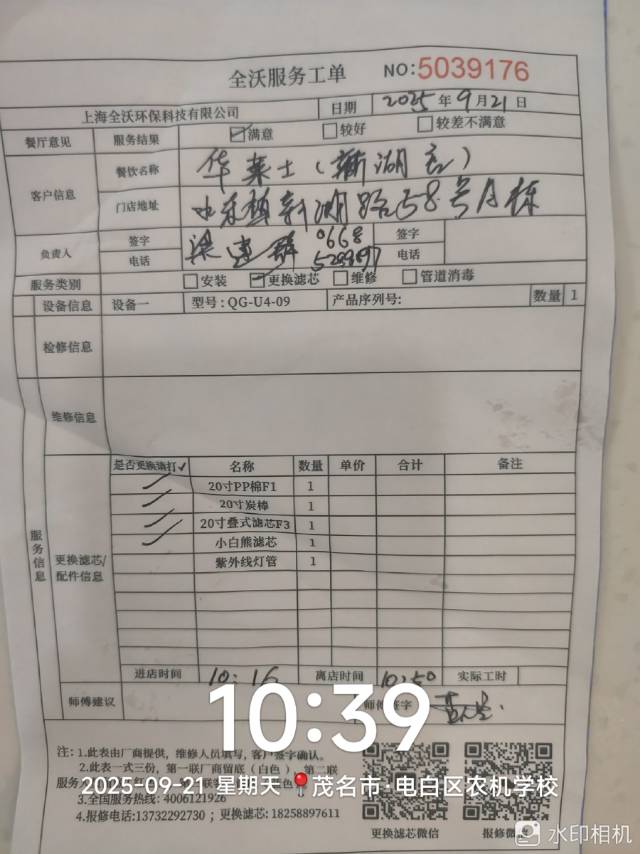 全沃服务工单 NO:5039176
上海全沃环保科技有限公司 日期 2025年9月21日
餐厅意见 服务结果 ☑满意 □较好 □较差不满意
客户信息 餐饮名称 华莱士(新湖店)
门店地址 新湖路58号A栋
负责人 签字 电话 0668 签字 电话
服务类别 □安装 ☑更换滤芯 □维修 □管道消毒
设备信息 设备一 型号:QG-U4-09 产品序列号: 数量 1
检修信息
维修信息
服务信息
更换滤芯/配件信息
名称 数量 单价 合计 备注
✓ 20寸PP棉F1 1
✓ 20寸炭棒 1
✓ 20寸叠式滤芯F3 1
✓ 小白熊滤芯 1
紫外线灯管 1
进店时间 10:16 离店时间 10:50 实际工时
师傅建议 师傅签字
10:39
注:1.此表由厂商提供,维修人员填写,客户签字确认。
2.此表一式三份,第一联厂商留底(白色),第二联
2025-09-21 星期天 茂名市·电白区农机学校
3.全国服务热线:4006121926
4.报修电话:13732292730;更换滤芯:18258897611
更换滤芯微信 报修微信
水印相机